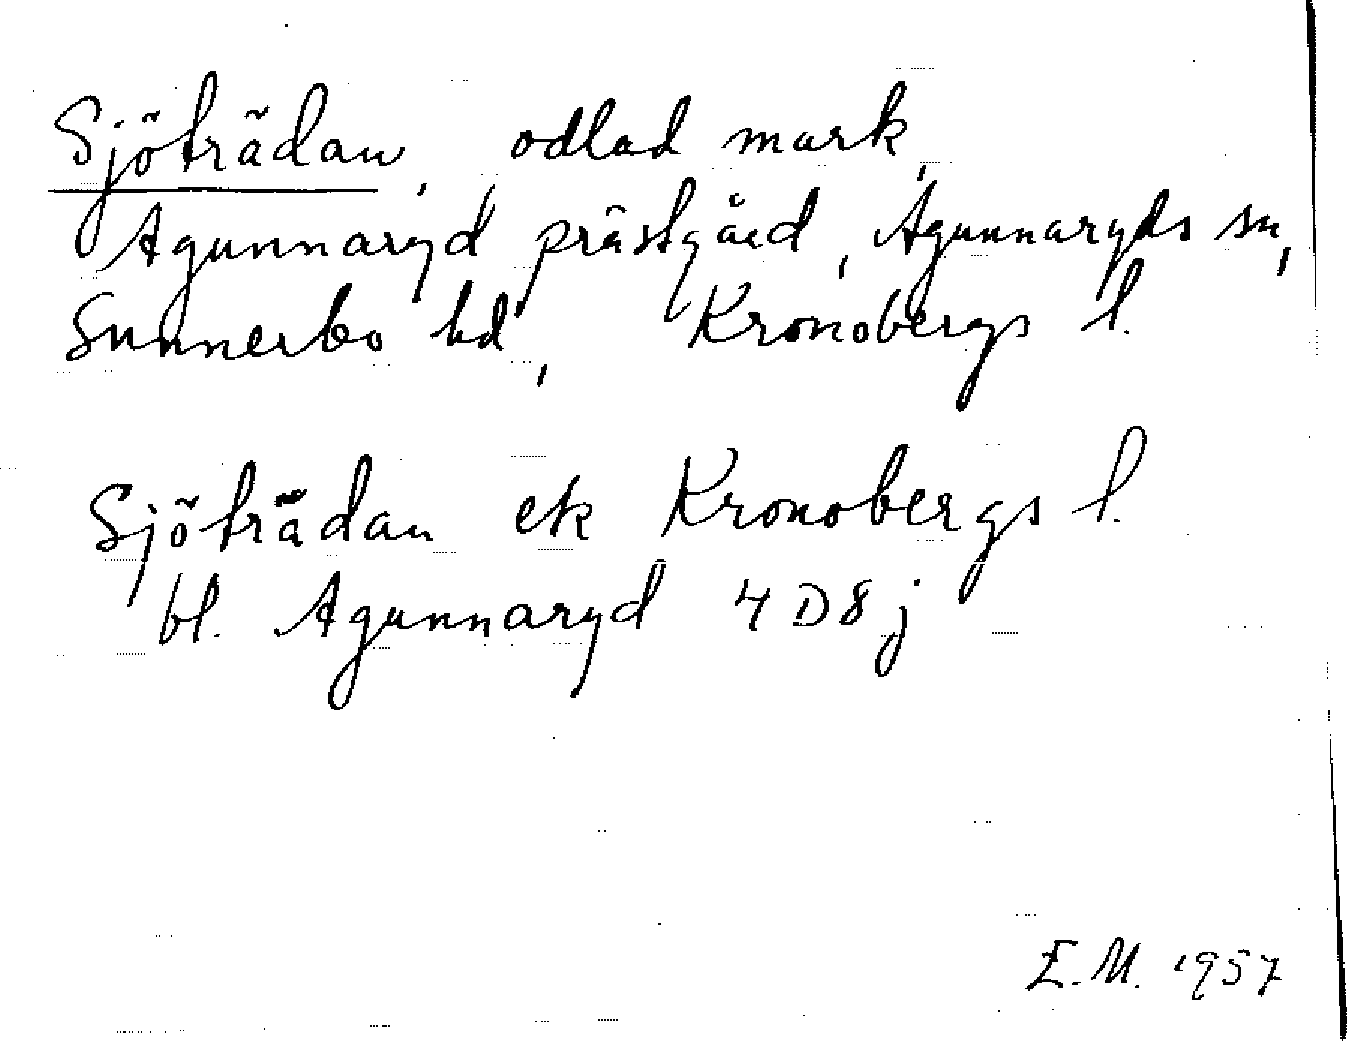 Sjöbrädan, odlad mark,
Agunnaryd prästgård, Agunnaryds sn,
Sunnerbo hd, Kronobergs l.
Sjöbrädan ek Kronobergs l.
bl. Agunnaryd 4D8j
E.M. 1957